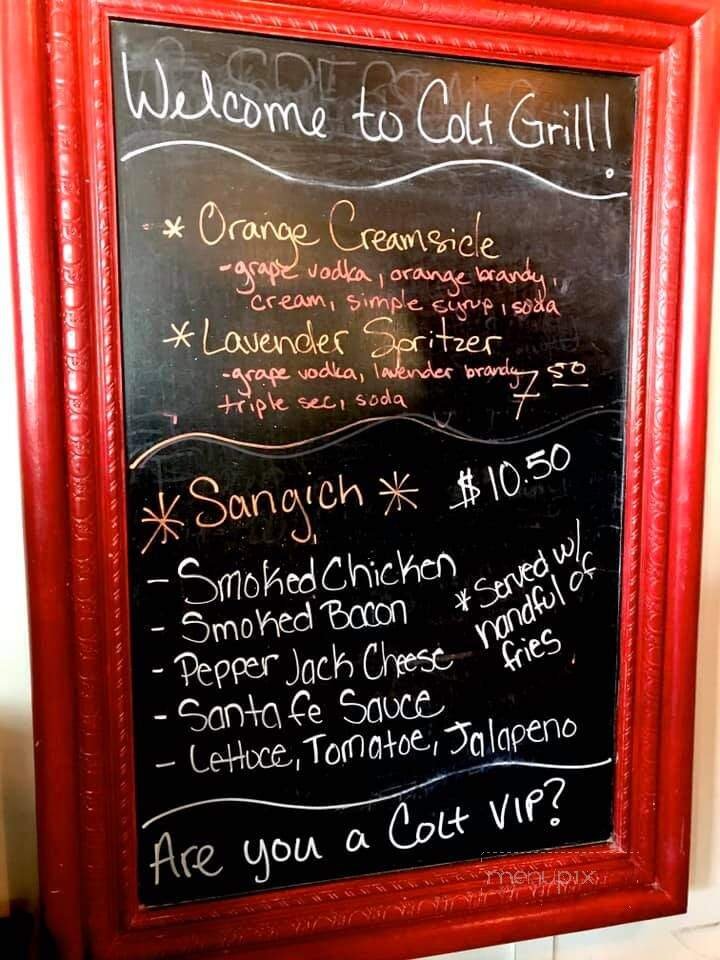 Welcome to Colt Grill!
* Orange Creamsicle
-grape vodka, orange brandy,
cream, simple syrup, soda
* Lavender Spritzer
-grape vodka, lavender brandy
triple sec, soda
7 50
* Sangich * $10.50
- Smoked Chicken
- Smoked Bacon
- Pepper Jack Cheese
- Santa fe Sauce
- Lettuce, Tomatoe, Jalapeno
* Served w/
handful of
fries
Are you a Colt VIP?
menupix